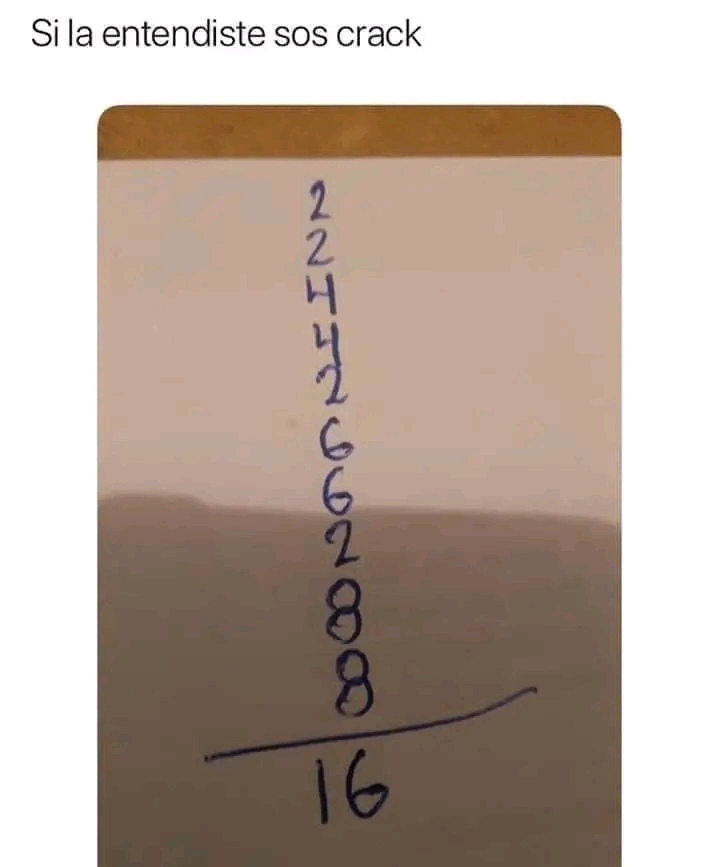 Si la entendiste sos crack
2
2
4
4
2
6
6
2
8
8
16